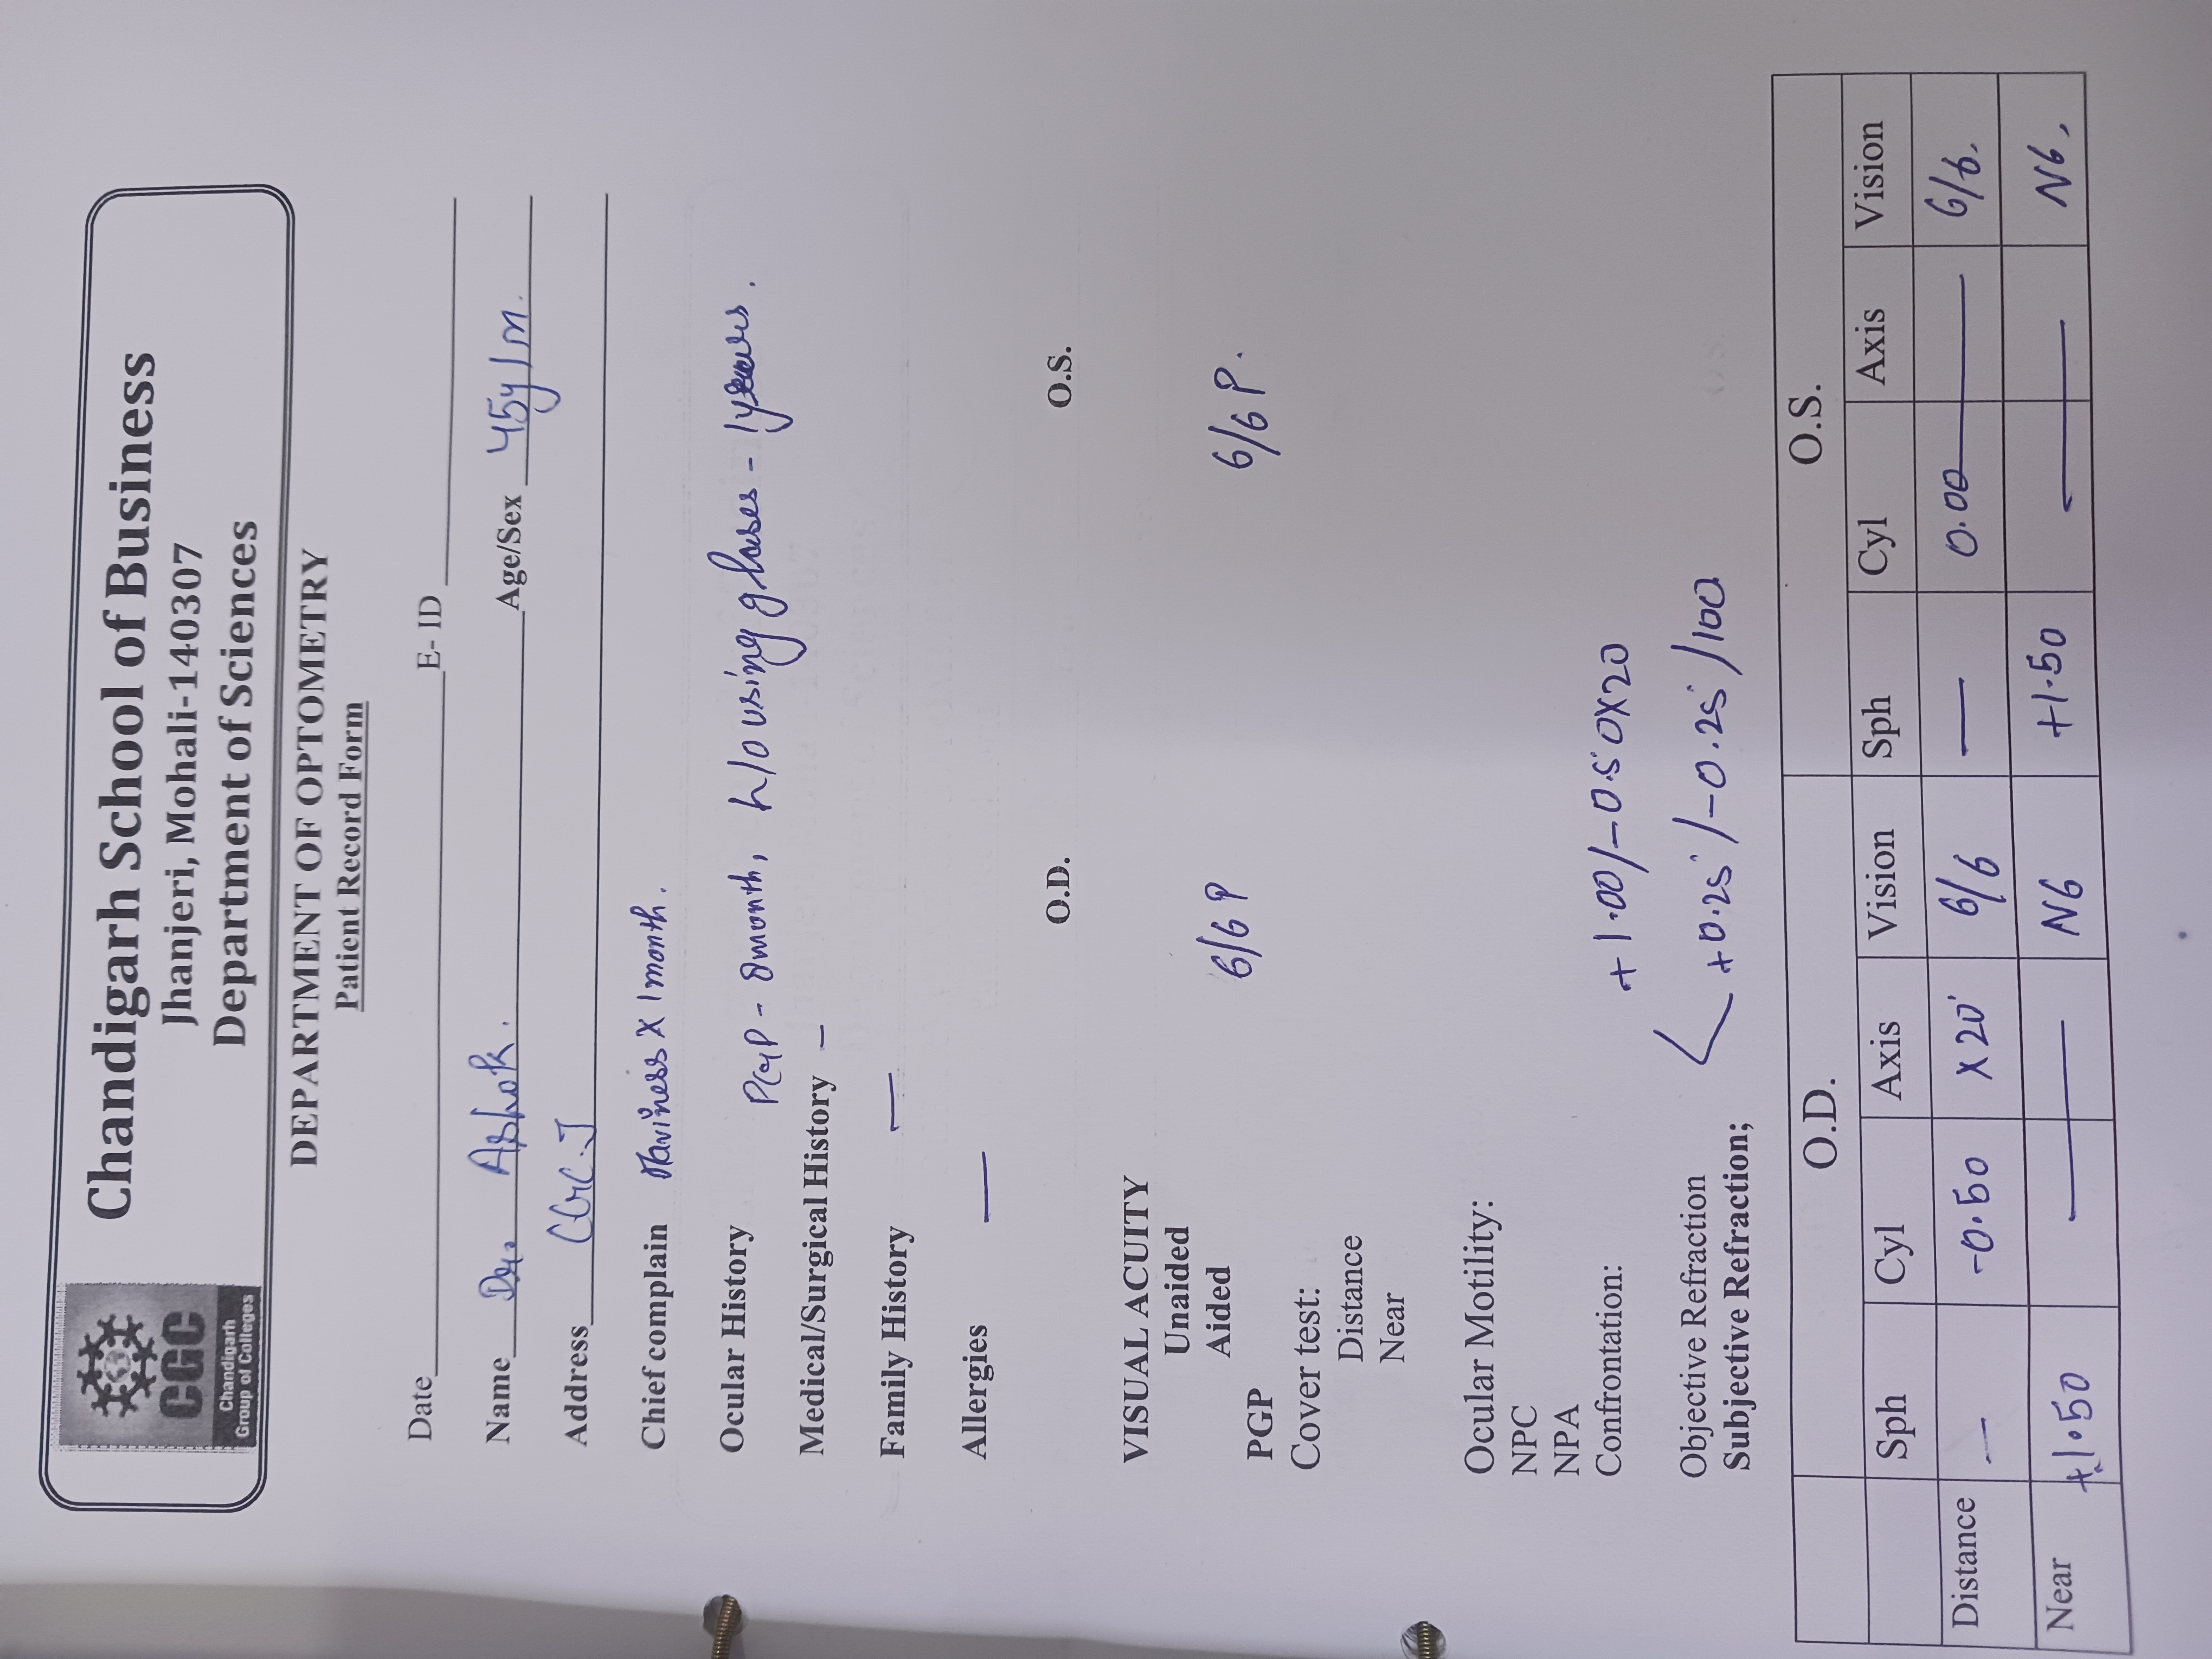 CGC
Chandigarh
Group of Colleges
Chandigarh School of Business
Jhanjeri, Mohali-140307
Department of Sciences
DEPARTMENT OF OPTOMETRY
Patient Record Form
Date E- ID
Name Dr. Ashok. Age/Sex 45y/m.
Address CGC.J
Chief complain Haviness X 1 month.
Ocular History PGP - 8month, h/o using glases - 1years.
Medical/Surgical History -
Family History -
Allergies -
O.D. O.S.
VISUAL ACUITY
Unaided
Aided 6/6 P 6/6 P.
PGP
Cover test:
Distance
Near
Ocular Motility:
NPC
NPA
Confrontation:
+1.00/-0.50X20
Objective Refraction < +0.25/-0.25/100
Subjective Refraction;
O.D. O.S.
Sph Cyl Axis Vision Sph Cyl Axis Vision
Distance - -0.50 X20' 6/6 - 0.00 - 6/6.
Near +1.50 - N6 +1.50 - N6.